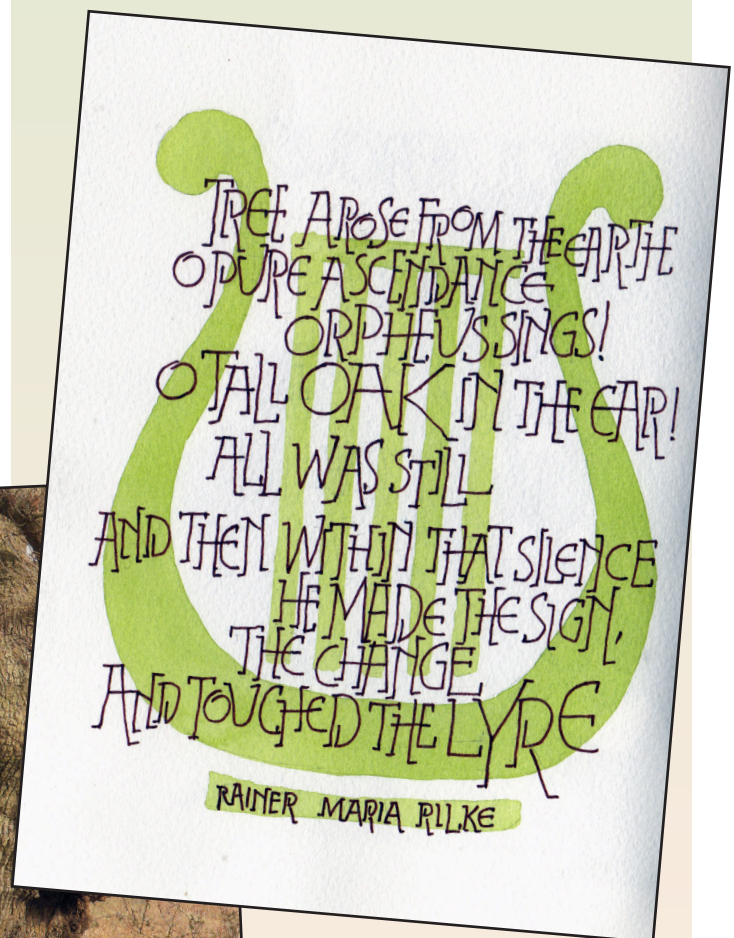 TREE AROSE FROM THE EARTH
O PURE ASCENDANCE
ORPHEUS SINGS!
O TALL OAK IN THE EAR!
ALL WAS STILL
AND THEN WITHIN THAT SILENCE
HE MADE THE SIGN,
THE CHANGE
AND TOUCHED THE LYRE
RAINER MARIA RILKE